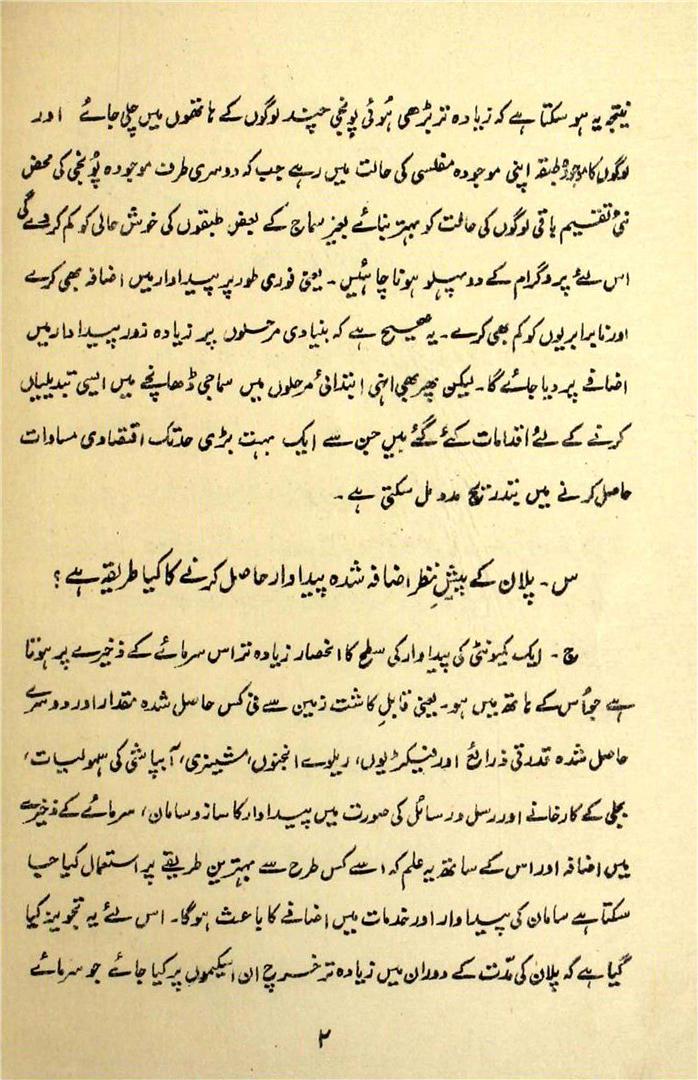 نتیجہ یہ ہو سکتا ہے کہ زیادہ تر بڑھی ہوئی پونجی چند لوگوں کے ہاتھوں میں چلی جائے اور
لوگوں کا موجودہ طبقہ اپنی موجودہ مفلسی کی حالت میں رہے جب کہ دوسری طرف موجودہ پونجی کی محض
نئی تقسیم باقی لوگوں کی حالت کو بہتر بنائے بغیر سماج کے بعض طبقوں کی خوش حالی کو کم کردے گی
اس لئے پروگرام کے دو پہلو ہونا چاہئیں۔ یعنی فوری طور پر پیداوار میں اضافہ بھی کرے
اور نابرابریوں کو کم بھی کرے۔ یہ صحیح ہے کہ بنیادی مرحلوں پر زیادہ زور پیداوار میں
اضافے پر دیا جائے گا۔ لیکن پھر بھی اپنی ابتدائی مرحلوں میں سماجی ڈھانچے میں ایسی تبدیلیاں
کرنے کے لئے اقدامات کئے گئے ہیں جن سے ایک بہت بڑی حدتک اقتصادی مساوات
حاصل کرنے میں بتدریج مدد مل سکتی ہے۔
س۔ پلان کے پیشِ نظر اضافہ شدہ پیداوار حاصل کرنے کا کیا طریقہ ہے؟
ج۔ ایک کمیونٹی کی پیداوار کی سطح کا انحصار زیادہ تر اس سرمائے کے ذخیرے پر ہوتا
ہے جو اُس کے ہاتھ میں ہو۔ یعنی قابلِ کاشت زمین سے فی کس حاصل شدہ مقدار اور دوسرے
حاصل شدہ قدرتی ذرائع اور فیکٹریوں، ریلوے انجنوں، مشینری، آبپاشی کی سہولیات،
بجلی کے کارخانے اور رسل و رسائل کی صورت میں پیداوار کا سازوسامان، سرمائے کے ذخیرے
میں اضافہ اور اس کے ساتھ یہ علم کہ اسے کس طرح سے بہترین طریقے پر استعمال کیا جا
سکتا ہے سامان کی پیداوار اور خدمات میں اضافے کا باعث ہوگا۔ اس لئے یہ تجویز کیا
گیا ہے کہ پلان کی مدّت کے دوران میں زیادہ تر خرچ ان اسکیموں پر کیا جائے جو سرمائے
۲